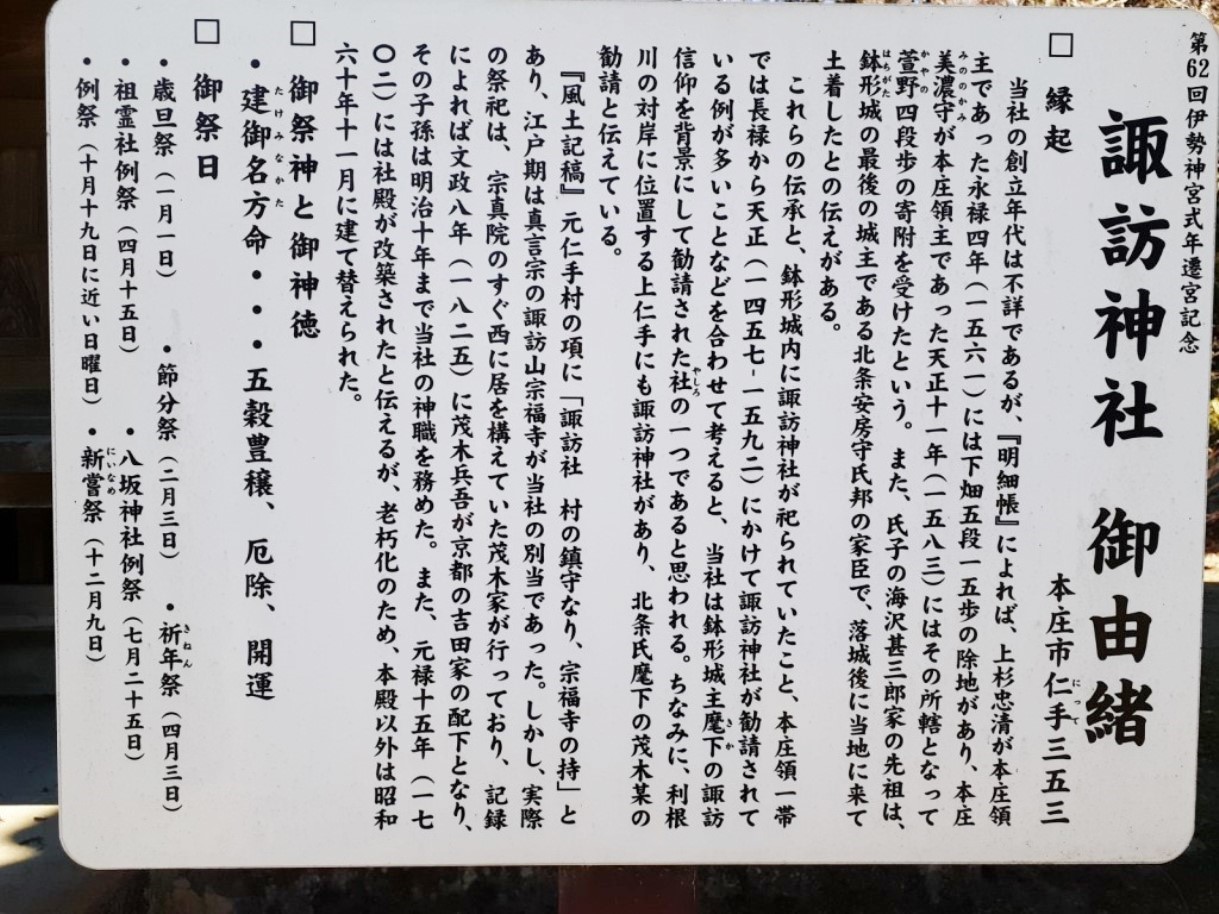 第62回伊勢神宮式年遷宮記念
諏訪神社 御由緒
本庄市仁手三五三
にって
□ 縁起
当社の創立年代は不詳であるが、『明細帳』によれば、上杉忠清が本庄領
主であった永禄四年（一五六一）には下畑五段一五歩の除地があり、本庄
美濃守が本庄領主であった天正十一年（一五八三）にはその所轄となって
みののかみ
萱野四段歩の寄附を受けたという。また、氏子の海沢甚三郎家の先祖は、
かやの
鉢形城の最後の城主である北条安房守氏邦の家臣で、落城後に当地に来て
はちがた
土着したとの伝えがある。
これらの伝承と、鉢形城内に諏訪神社が祀られていたこと、本庄領一帯
では長禄から天正（一四五七-一五九二）にかけて諏訪神社が勧請されて
いる例が多いことなどを合わせて考えると、当社は鉢形城主麾下の諏訪
きか
信仰を背景にして勧請された社の一つであると思われる。ちなみに、利根
やしろ
川の対岸に位置する上仁手にも諏訪神社があり、北条氏麾下の茂木某の
勧請と伝えている。
『風土記稿』元仁手村の項に「諏訪社 村の鎮守なり、宗福寺の持」と
あり、江戸期は真言宗の諏訪山宗福寺が当社の別当であった。しかし、実際
の祭祀は、宗真院のすぐ西に居を構えていた茂木家が行っており、記録
によれば文政八年（一八二五）に茂木兵吾が京都の吉田家の配下となり、
その子孫は明治十年まで当社の神職を務めた。また、元禄十五年（一七
〇二）には社殿が改築されたと伝えるが、老朽化のため、本殿以外は昭和
六十年十一月に建て替えられた。
□ 御祭神と御神徳
・建御名方命・・・五穀豊穣、厄除、開運
たけみなかた
□ 御祭日
・歳旦祭（一月一日） ・節分祭（二月三日） ・祈年祭（四月三日）
きねん
・祖霊社例祭（四月十五日） ・八坂神社例祭（七月二十五日）
・例祭（十月十九日に近い日曜日） ・新嘗祭（十二月九日）
にいなめ